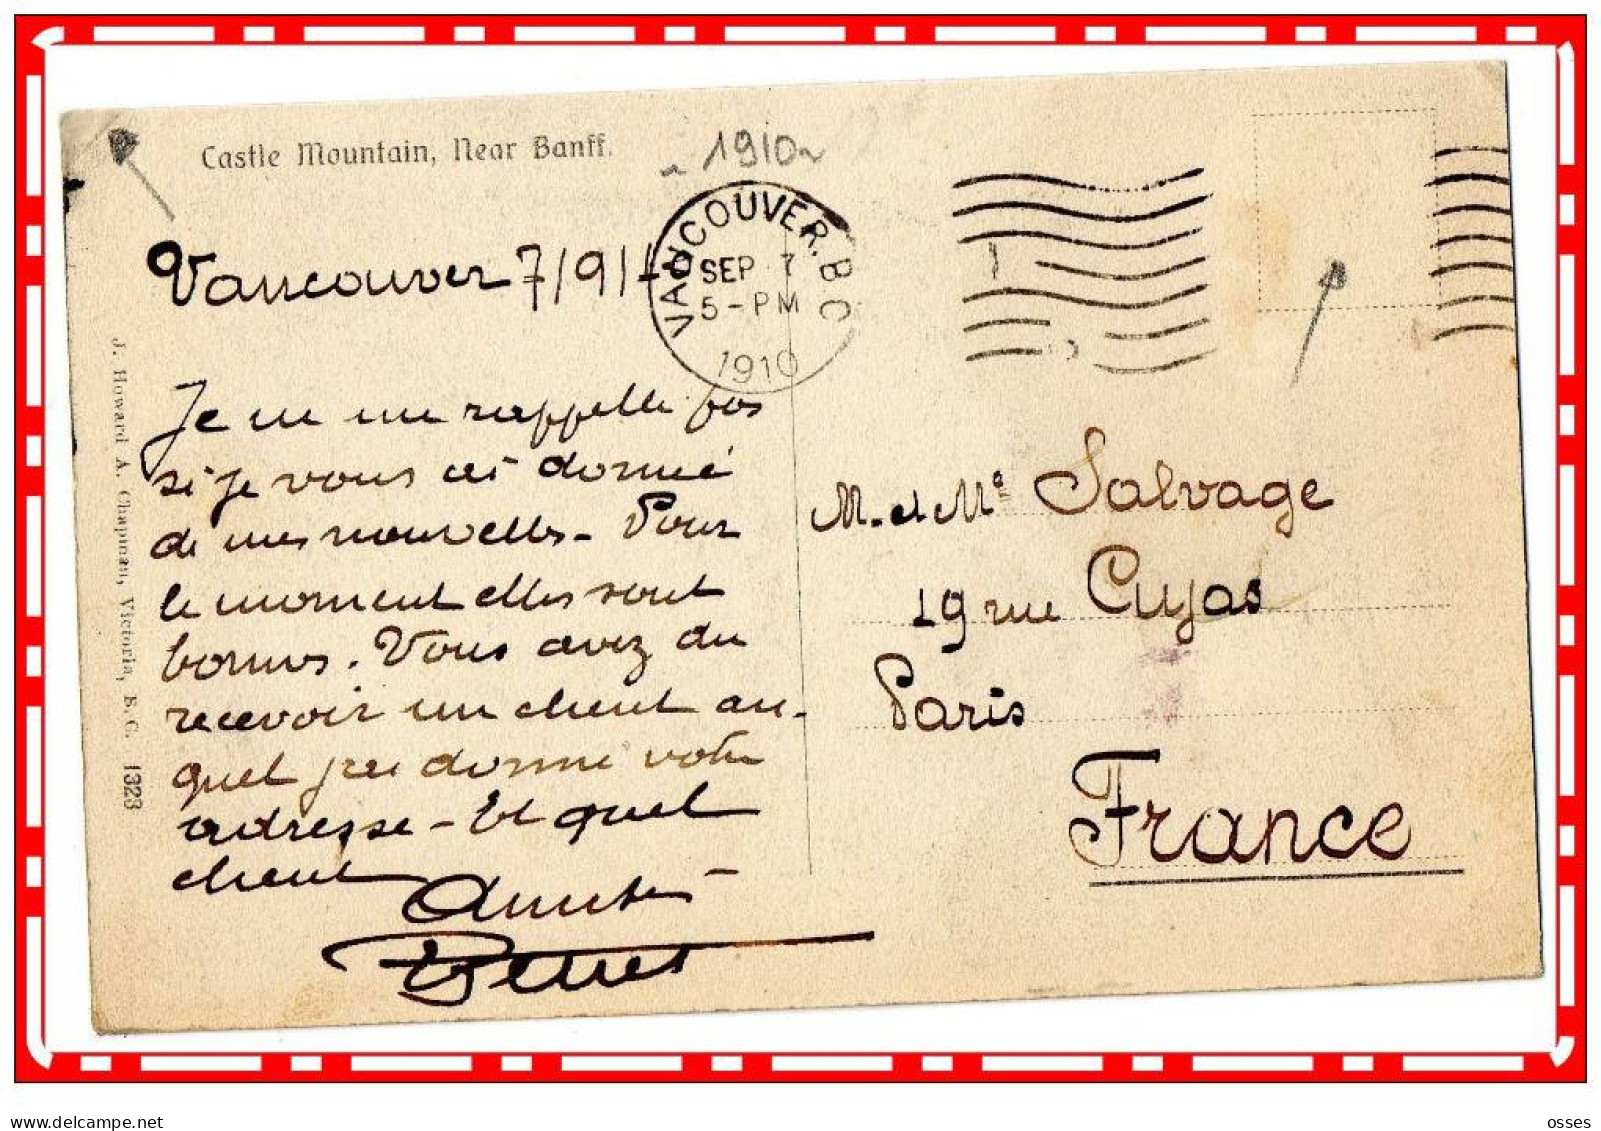 Castle Mountain, Near Banff.
~ 1910 ~
VANCOUVER. B C
SEP 7
5-PM
1910
Vancouver 7/9/
Je ne me rappelle pas
si je vous ai donné
de mes nouvelles - Pour
le moment elles sont
bonnes. Vous avez du
recevoir un client au-
quel j'ai donné votre
adresse - Et quel
client
Amitiés
J. Howard A. Chapman, Victoria, B.C. 1323
M. et Me Salvage
19 rue Cujas
Paris
France
delcampe.net
osses